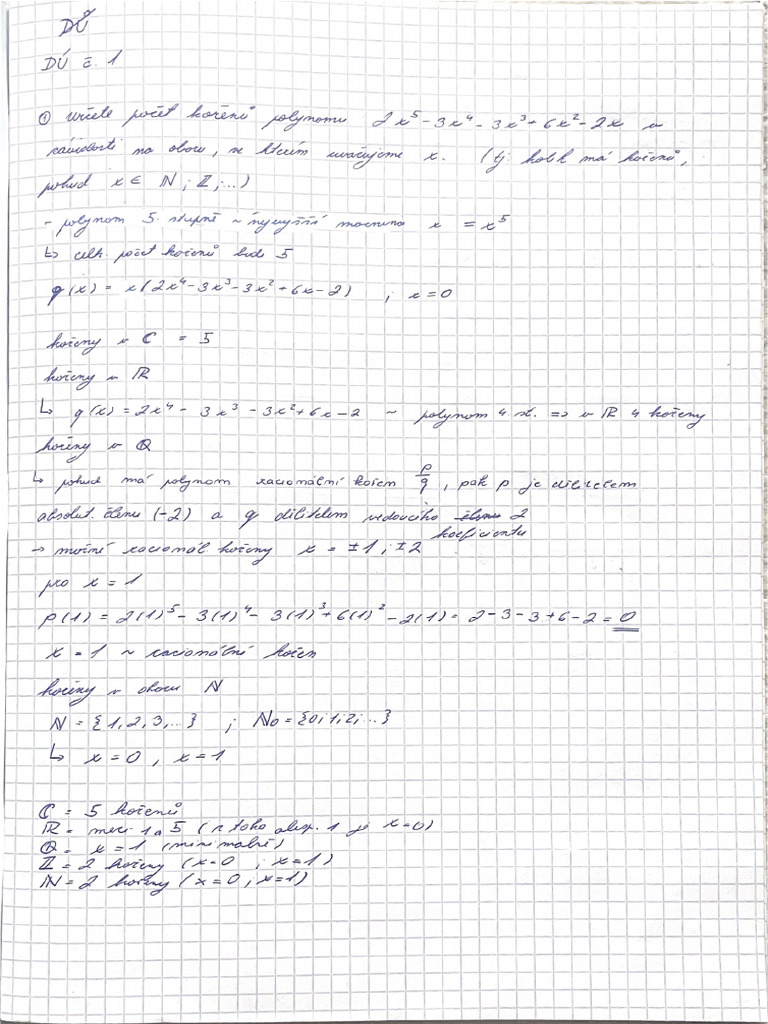 DŮ
DÚ č. 1
① Určete počet kořenů polynomu 2x⁵ - 3x⁴ - 3x³ + 6x² - 2x v
závislosti na oboru, ve kterém uvažujeme x. (tj. kolik má kořenů,
pokud x ∈ ℕ; ℤ;...)
- polynom 5. stupně ~ nejvyšší mocnina x = x⁵
↳ celk. počet kořenů bude 5
q(x) = x(2x⁴ - 3x³ - 3x² + 6x - 2) ; x = 0
kořeny v ℂ = 5
kořeny v ℝ
↳ q(x) = 2x⁴ - 3x³ - 3x² + 6x - 2 ~ polynom 4 st. => v ℝ 4 kořeny
kořeny v ℚ
↳ pokud má polynom racionální kořen p/q, pak p je dělitelem
absolut. členu (-2) a q dělitelem vedoucího členu 2
koeficientu
→ možné racionál kořeny x = ±1; ±2
pro x = 1
p(1) = 2(1)⁵ - 3(1)⁴ - 3(1)³ + 6(1)² - 2(1) = 2-3-3+6-2 = 0
x = 1 ~ racionální kořen
kořeny v oboru ℕ
ℕ = {1, 2, 3,...} ; ℕ₀ = {0; 1; 2;...}
↳ x = 0, x = 1
ℂ = 5 kořenů
ℝ = mezi 1 a 5 (z toho alesp. 1 je x=0)
ℚ = x = 1 (minimálně)
ℤ = 2 kořeny (x=0 ; x=1)
ℕ = 2 kořeny (x=0; x=1)